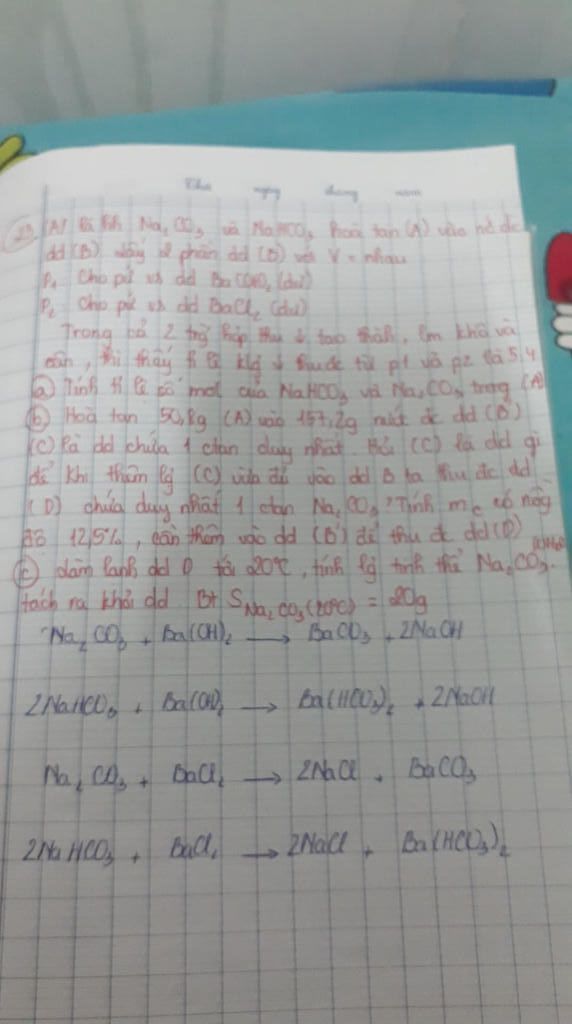 Thứ ngày tháng năm
23 (A) là hh Na₂CO₃ và NaHCO₃ hoà tan (A) vào nc đc
dd (B) lấy 2 phần dd (B) với V = nhau
P₁ Cho pứ vs dd Ba(OH)₂ (dư)
P₂ Cho pứ vs dd BaCl₂ (dư)
Trong cả 2 trg hợp thu ↓ tạo thành, làm khô và
cân, thì thấy tỉ lệ klg ↓ thu đc từ p1 và p2 là 5,4
(a) Tính tỉ lệ số mol của NaHCO₃ và Na₂CO₃ trong (A)
(b) Hoà tan 50,8g (A) vào 157,2g nước đc dd (B')
(C) là dd chứa 1 ctan duy nhất. Hỏi (C) là dd gì
để khi thêm lg (C) vừa đủ vào dd B ta thu đc dd
(D) chứa duy nhất 1 ctan Na₂CO₃? Tính m_C có nồng
độ 12,5%, cần thêm vào dd (B') để thu đc dd (D)
(c) Làm lạnh dd D tới 20°C, tính lg tinh thể Na₂CO₃.
tách ra khỏi dd. Bt S Na₂CO₃ (20°C) = 20g
Na₂CO₃ + Ba(OH)₂ → BaCO₃ + 2NaOH
2NaHCO₃ + Ba(OH)₂ → Ba(HCO₃)₂ + 2NaOH
Na₂CO₃ + BaCl₂ → 2NaCl + BaCO₃
2NaHCO₃ + BaCl₂ → 2NaCl + Ba(HCO₃)₂